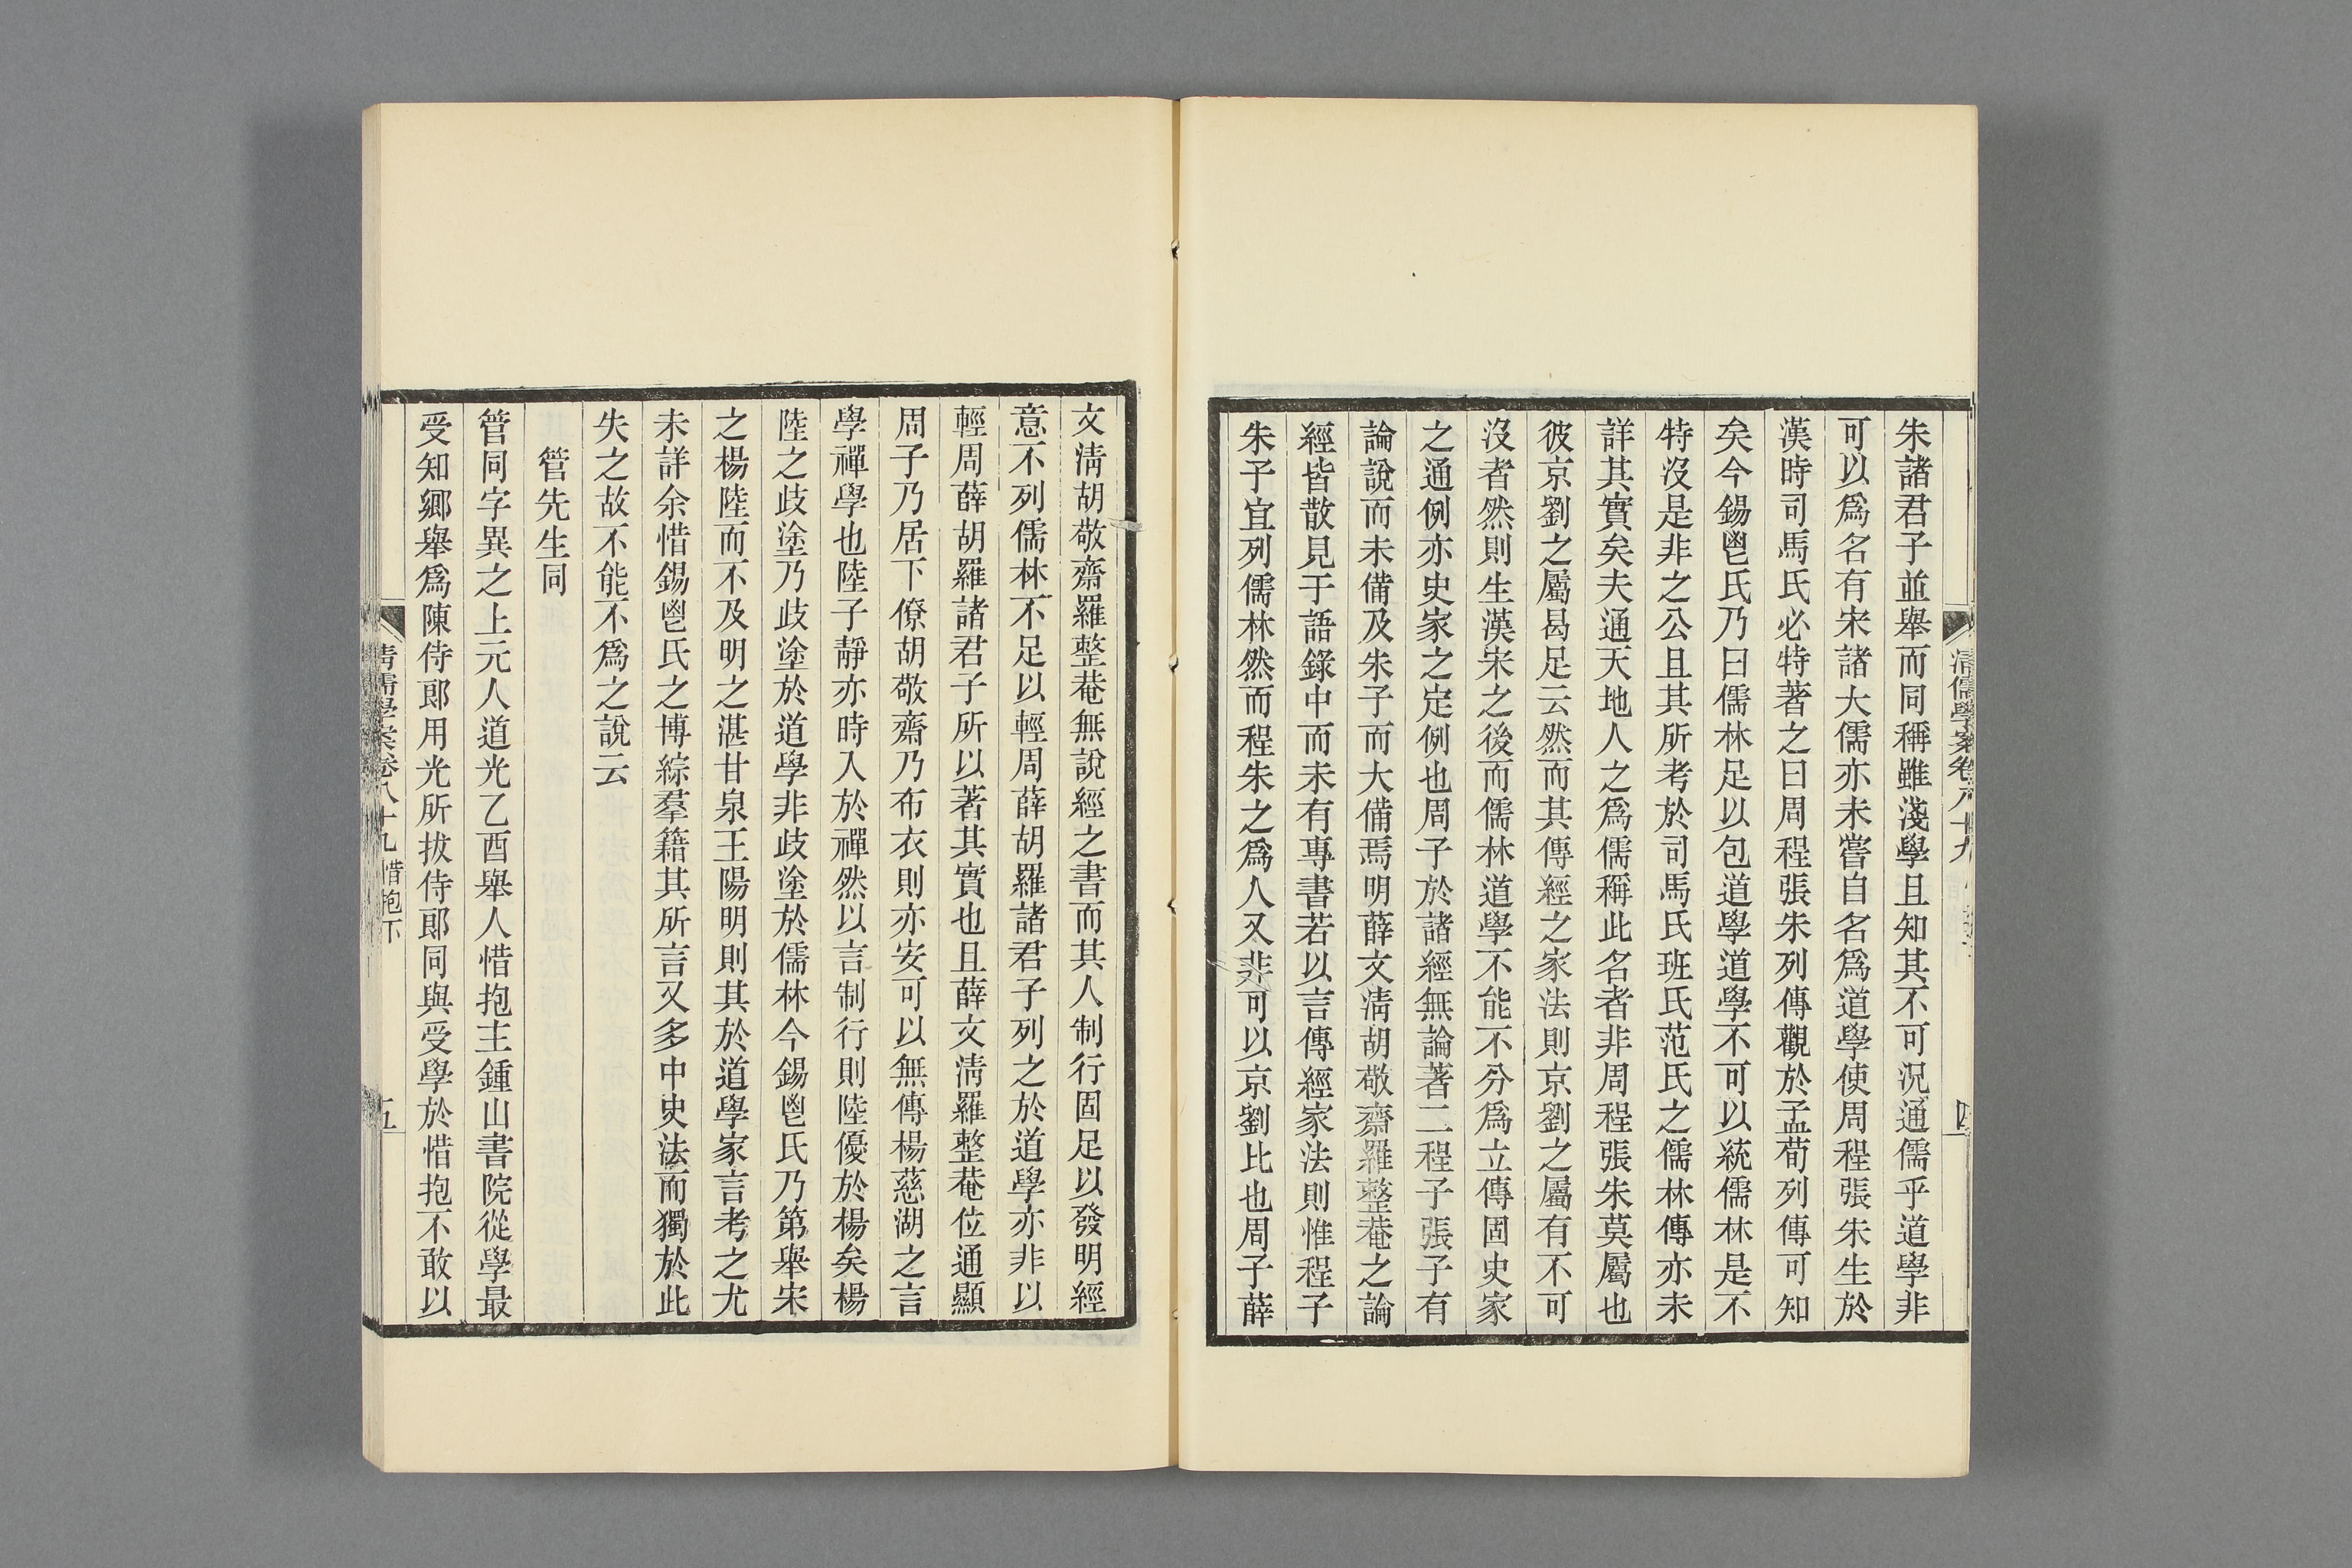 朱諸君子並舉而同稱雖淺學且知其不可況通儒乎道學非
可以爲名有宋諸大儒亦未嘗自名爲道學使周程張朱生於
漢時司馬氏必特著之曰周程張朱列傳觀於孟荀列傳可知
矣今錫鬯氏乃曰儒林足以包道學道學不可以統儒林是不
特沒是非之公且其所考於司馬氏班氏范氏之儒林傳亦未
詳其實矣夫通天地人之爲儒稱此名者非周程張朱莫屬也
彼京劉之屬曷足云然而其傳經之家法則京劉之屬有不可
沒者然則生漢宋之後而儒林道學不能不分爲立傳固史家
之通例亦史家之定例也周子於諸經無論著二程子張子有
論說而未備及朱子而大備焉明薛文淸胡敬齋羅整菴之論
經皆散見于語錄中而未有專書若以言傳經家法則惟程子
朱子宜列儒林然而程朱之爲人又非可以京劉比也周子薛
清儒學案卷八十九
四
文淸胡敬齋羅整菴無說經之書而其人制行固足以發明經
意不列儒林不足以輕周薛胡羅諸君子列之於道學亦非以
輕周薛胡羅諸君子所以著其實也且薛文淸羅整菴位通顯
周子乃居下僚胡敬齋乃布衣則亦安可以無傳楊慈湖之言
學禪學也陸子靜亦時入於禪然以言制行則陸優於楊矣楊
陸之歧塗乃歧塗於道學非歧塗於儒林今錫鬯氏乃第舉宋
之楊陸而不及明之湛甘泉王陽明則其於道學家言考之尤
未詳余惜錫鬯氏之博綜羣籍其所言又多中史法而獨於此
失之故不能不爲之說云
管先生同
管同字異之上元人道光乙酉舉人惜抱主鍾山書院從學最
受知鄉舉爲陳侍郎用光所拔侍郎同與受學於惜抱不敢以
清儒學案卷八十九 惜抱下
五